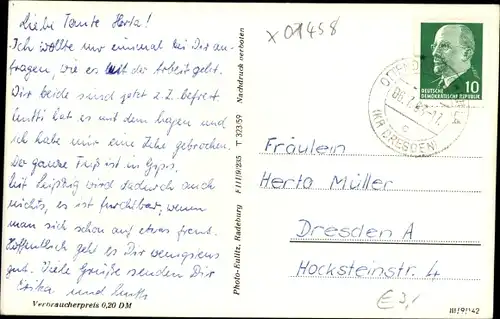 Liebe Tante Herta!
Ich wollte nur einmal bei Dir an-
fragen, wie es mit der Arbeit geht.
Wir beide sind jetzt z.Z. befreit
Mutti hat es mit dem Magen und
ich habe mir eine Zehe gebrochen.
Der ganze Fuß ist in Gips.
Mit Leipzig wird dadurch auch
nichts, es ist furchtbar, wenn
man sich schon auf etwas freut.
Hoffentlich geht es Dir wenigstens
gut. Viele Grüße senden Dir
Erika und Mutti
Verbraucherpreis 0,20 DM
Photo-Eulitz, Radeburg F 11/19/235 T 323/59 Nachdruck verboten
x01458
DEUTSCHE
DEMOKRATISCHE REPUBLIK
10
(KR DRESDEN)
Fräulein
Herta Müller
Dresden A
Hocksteinstr. 4
€3,-
III/9/142